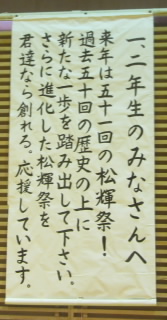 一、二年生のみなさんへ
来年は五十一回の松輝祭！
過去五十回の歴史の上に
新たな一歩を踏み出して下さい。
さらに進化した松輝祭を
君達なら創れる。応援しています。